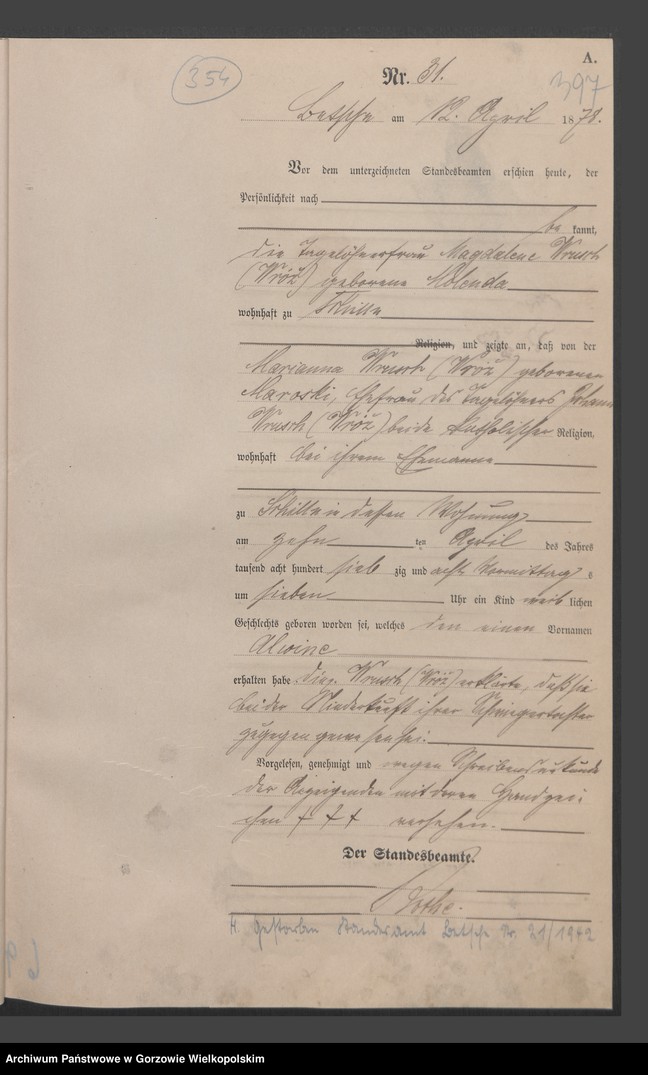 A.
354
Nr. 31.
397
Betsche am 12. April 1878.
Vor dem unterzeichneten Standesbeamten erschien heute, der
Persönlichkeit nach
be kannt,
die Tagelöhnerfrau Magdalene Wrusch
(Wróż) geborene Molenda
wohnhaft zu
Religion, und zeigte an, daß von der
Marianna Wrusch (Wróż) geborenen
Maroski, Ehefrau des Tagelöhners Johann
Wrusch (Wróż) beide katholischer Religion,
wohnhaft bei ihrem Ehemanne
zu in dessen Wohnung
am zehn ten April des Jahres
tausend acht hundert sieb zig und acht Vormittag s
um sieben Uhr ein Kind weib lichen
Geschlechts geboren worden sei, welches den einen Vornamen
Alwine
erhalten habe. Die Wrusch (Wróż) erklärte, daß sie
bei der Niederkunft ihrer Schwiegertochter
zugegen gewesen sei.
Vorgelesen, genehmigt und wegen Schreibensunkunde
der Anzeigenden mit deren Handzei-
chen + + + versehen.
Der Standesbeamte.
H. Gestorben Standesamt Betsche Nr. 21/1942